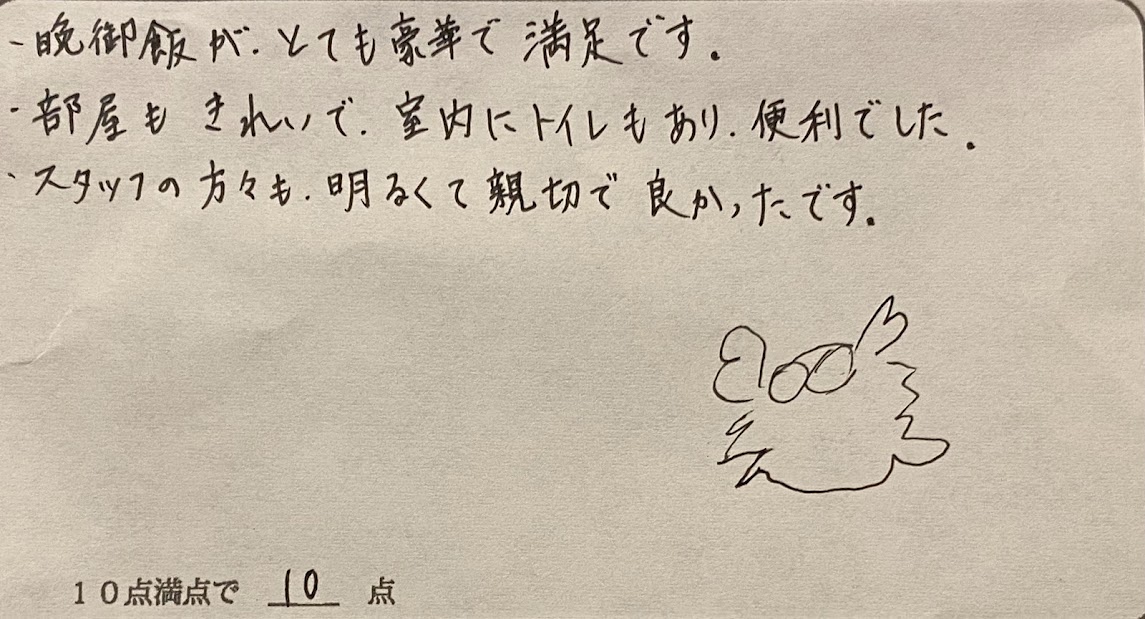 ・晩御飯が、とても豪華で満足です。
・部屋もきれいで、室内にトイレもあり、便利でした。
・スタッフの方々も、明るくて親切で良かったです。
10点満点で 10 点